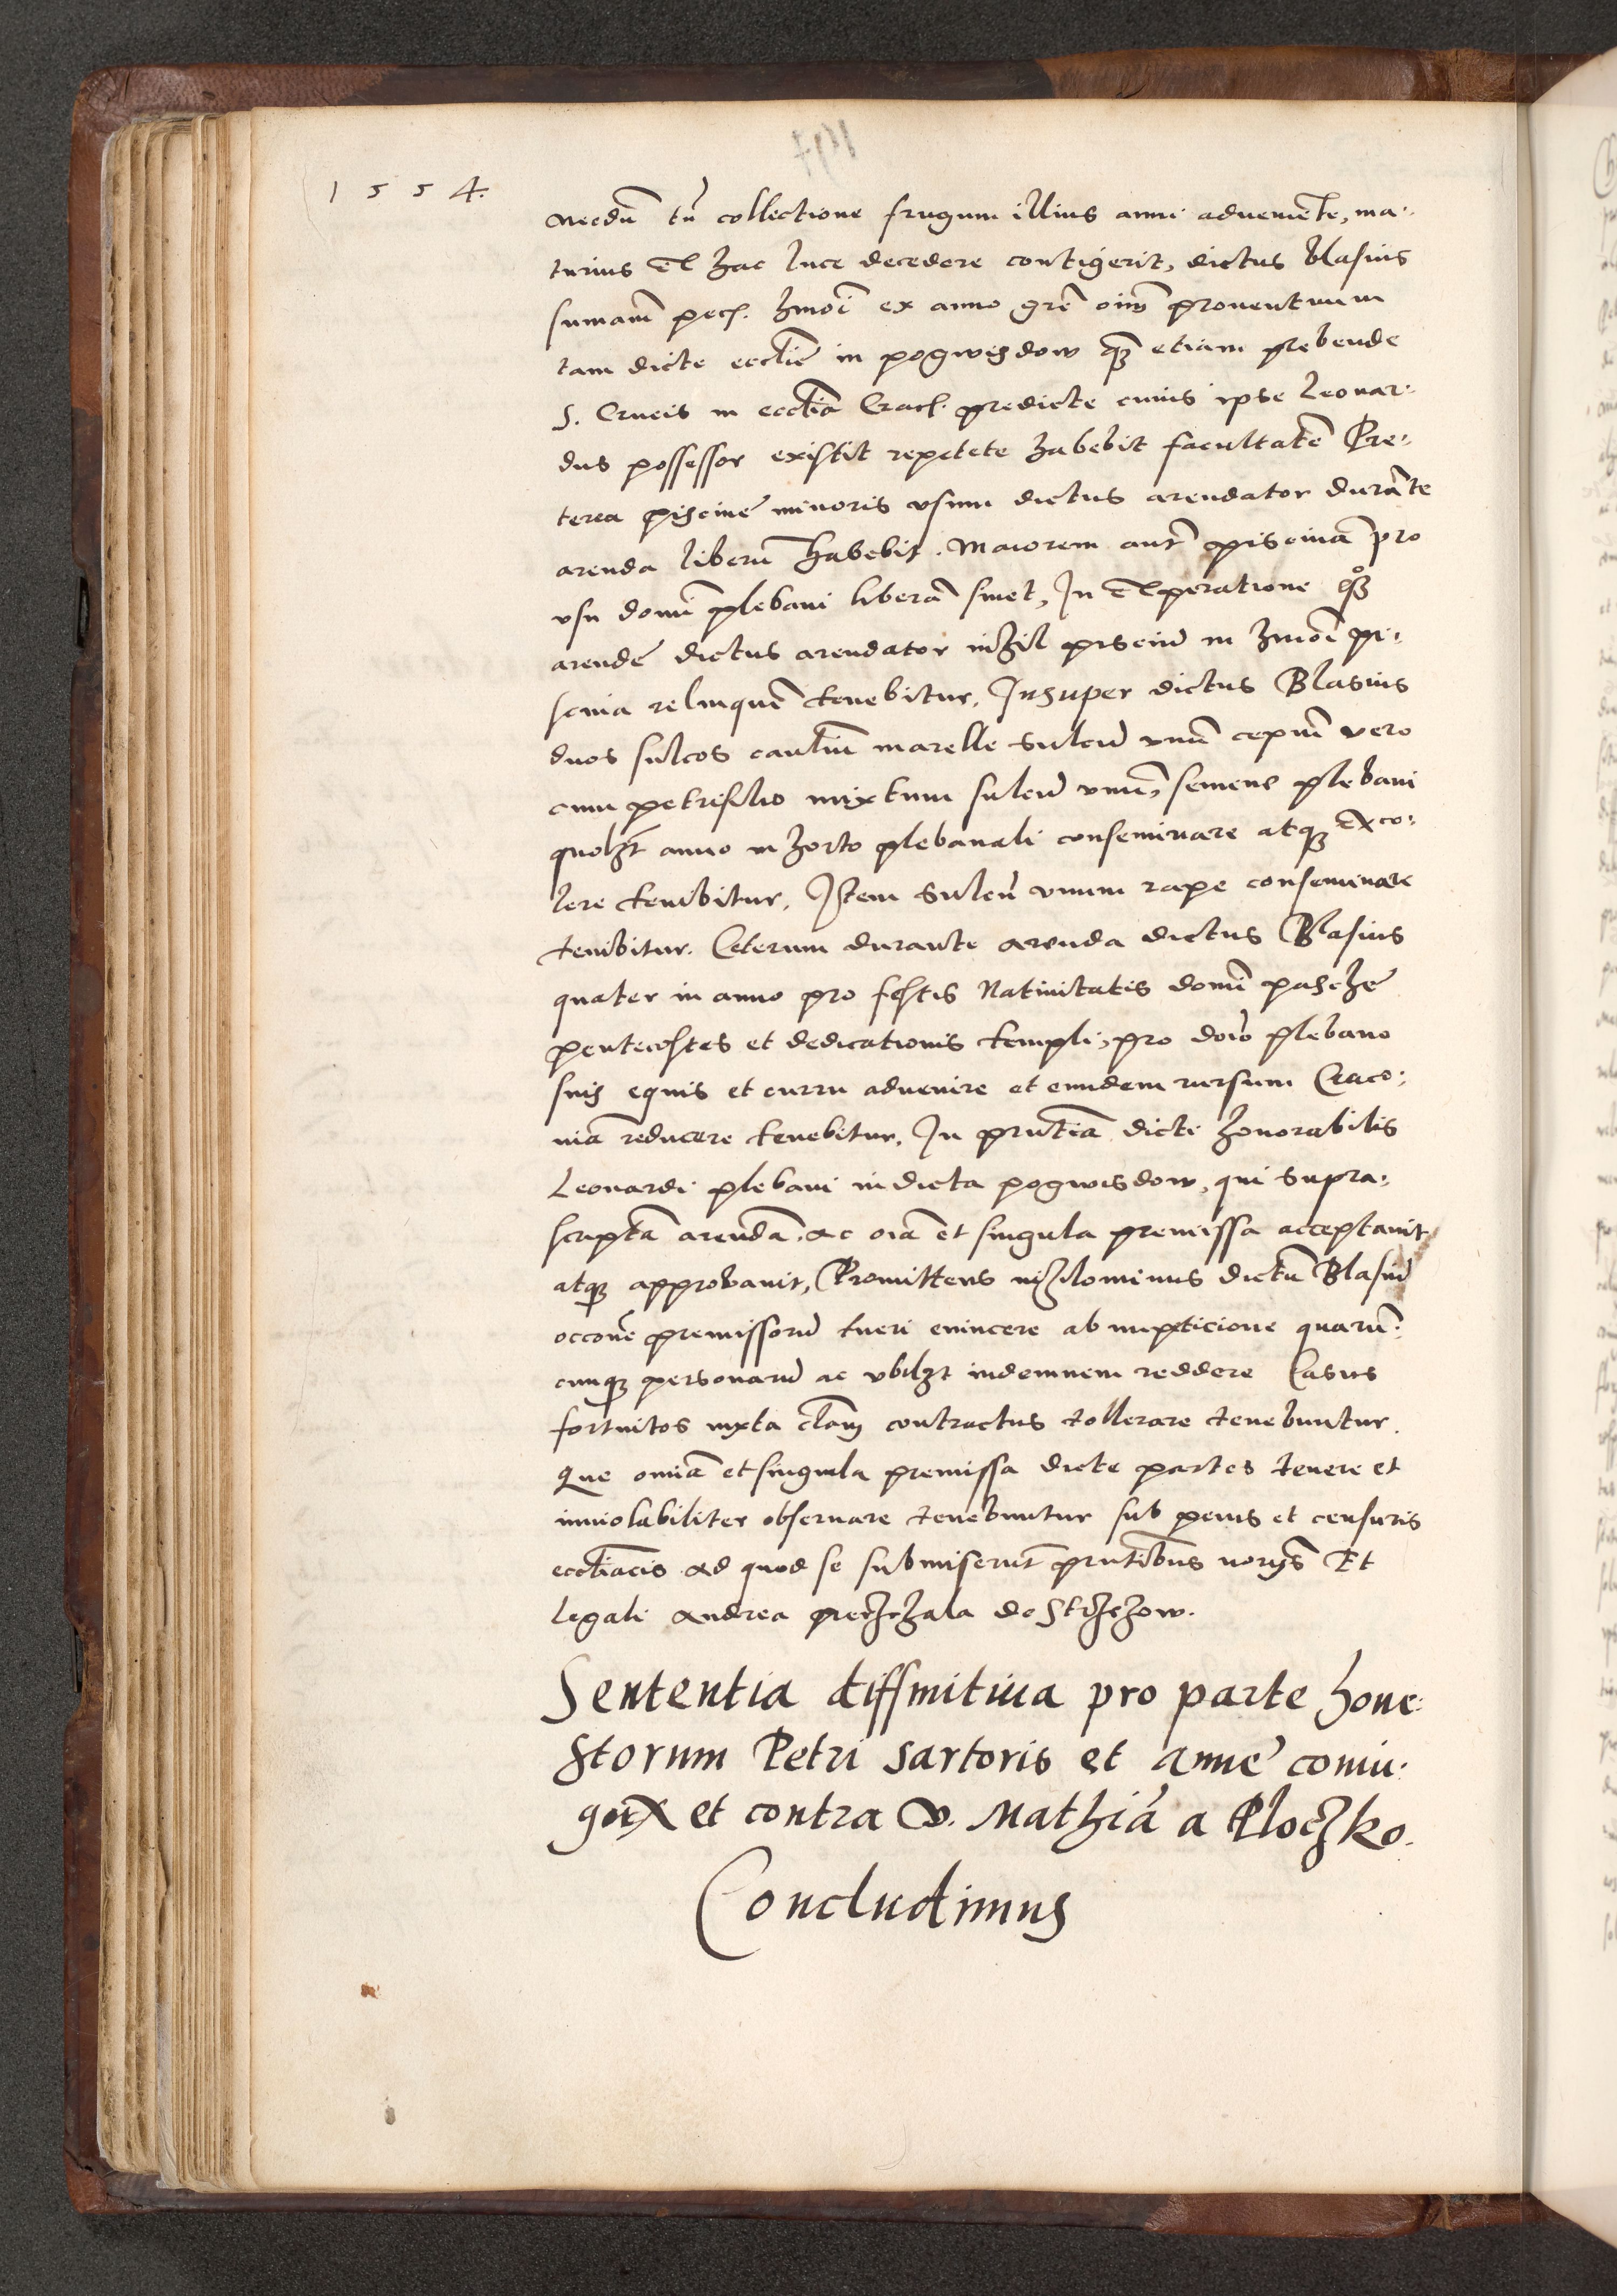 1554.
necdũ tñ collectione frugum illius anni adueniẽte, ma-
turius ex hac luce decedere contigerit, dictus blasius
sum̃am pecħ. hm̃oi ex anno grẽ oim̃ prouentuum
tam dicte eccl̃ie in pogwisdow qʒ etiam prebende
S. Crucis in eccl̃ia Cracħ. predicte cuius ipse Leonar-
dus possessor existit repetete habebit facultatẽ Pre-
terea piscine minoris vsum dictus arendator durãte
arenda liberũ habebit. Maiorem aut̃ piscinã pro
vsu domĩ plebani liberã sinet, In exp̃iratione qʒ
arende dictus arendator nihil pisciũ in hm̃oi pi-
scina relinquẽ tenebitur, Insuper dictus Blasius
duos sulcos cauliũ marelle sulcũ vnũ ceparũ vero
cum petrisilio mixtum sulcũ vnũ, semene plebani
quolʒt anno in horto plebanali conseminare atqʒ exco-
lere tenebitur, Item sulcũ vnum rape conseminare
tenebitur. Ceterum durante arenda dictus Blasius
quater in anno pro festis Natiuitatis domĩ pasche
pentecostes et dedicationis templi, pro dn̄o plebano
suis equis et curru aduenire et eundem rursum Craco-
uiã reducere tenebitur, In pñtia dicti honorabilis
Leonardi plebani in dicta pogwisdow, qui supra-
scriptã arendã ac oĩa et singula premissa acceptauit
atqʒ approbauit, Promittens nihilominus dictũ Blasiũ
occõne premissorũ tueri euincere ab impeticione quarũ-
cunqʒ personarũ ac vbilʒt indemnem reddere Casus
fortuitos iuxta cl̃am contractus tollerare tenebuntur.
Que omĩa et singula premissa dicte partes tenere et
inuiolabiliter obseruare tenebuntur sub penis et censuris
eccl̃iacis ad quod se submiserũt pñtibus
Et
legali Andrea
Sententia diffinitiua pro parte hone-
storum Petri sartoris et Anne coniu-
gũ et contra v. Mathiã a Ploczko.
Concludimus